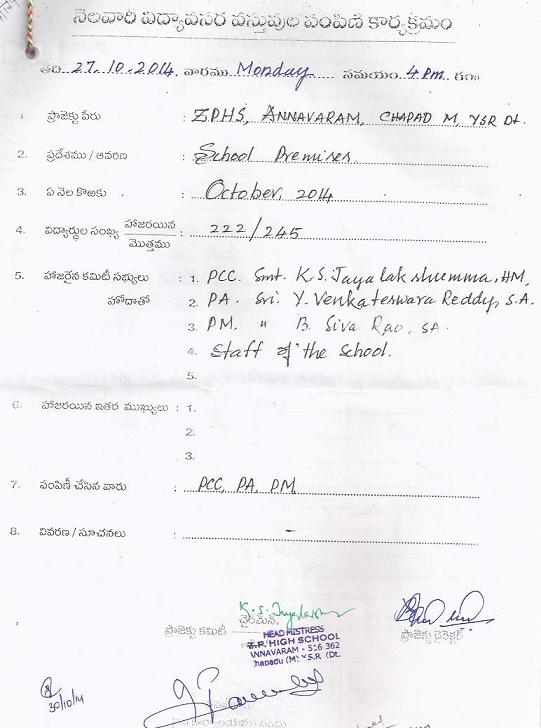 నెలవారి విద్యావసర వస్తువుల పంపిణి కార్యక్రమం
తేది 27.10.2014. వారము Monday సమయం 4 Pm. గం॥
1. ప్రాజెక్టు పేరు : Z.P.H.S, ANNAVARAM, CHAPAD M, YSR Dt.
2. ప్రదేశము / ఆవరణ : School Premises
3. ఏ నెల కొఱకు : October, 2014
4. విద్యార్ధుల సంఖ్య హాజరయిన / మొత్తము : 222/245
5. హాజరైన కమిటీ సభ్యులు : 1. PCC. Smt. K.S. Jayalakshumma, HM,
హోదాతో 2. PA. Sri. Y. Venkateswara Reddy, S.A.
3. PM. " B. Siva Rao, SA.
4. Staff of the School.
5.
6. హాజరయిన ఇతర ముఖ్యులు : 1.
2.
3.
7. పంపిణీ చేసిన వారు : PCC, PA, PM
8. వివరణ / సూచనలు : -
K.S. Jayalakshu
ప్రాజెక్టు కమిటీ ఛైర్మెన్, ప్రాజెక్టు డైరెక్టర్
HEAD MISTRESS
Z.P. HIGH SCHOOL
ANNAVARAM - 516 362
Chapadu (M) Y.S.R (Dt.
30/10/14